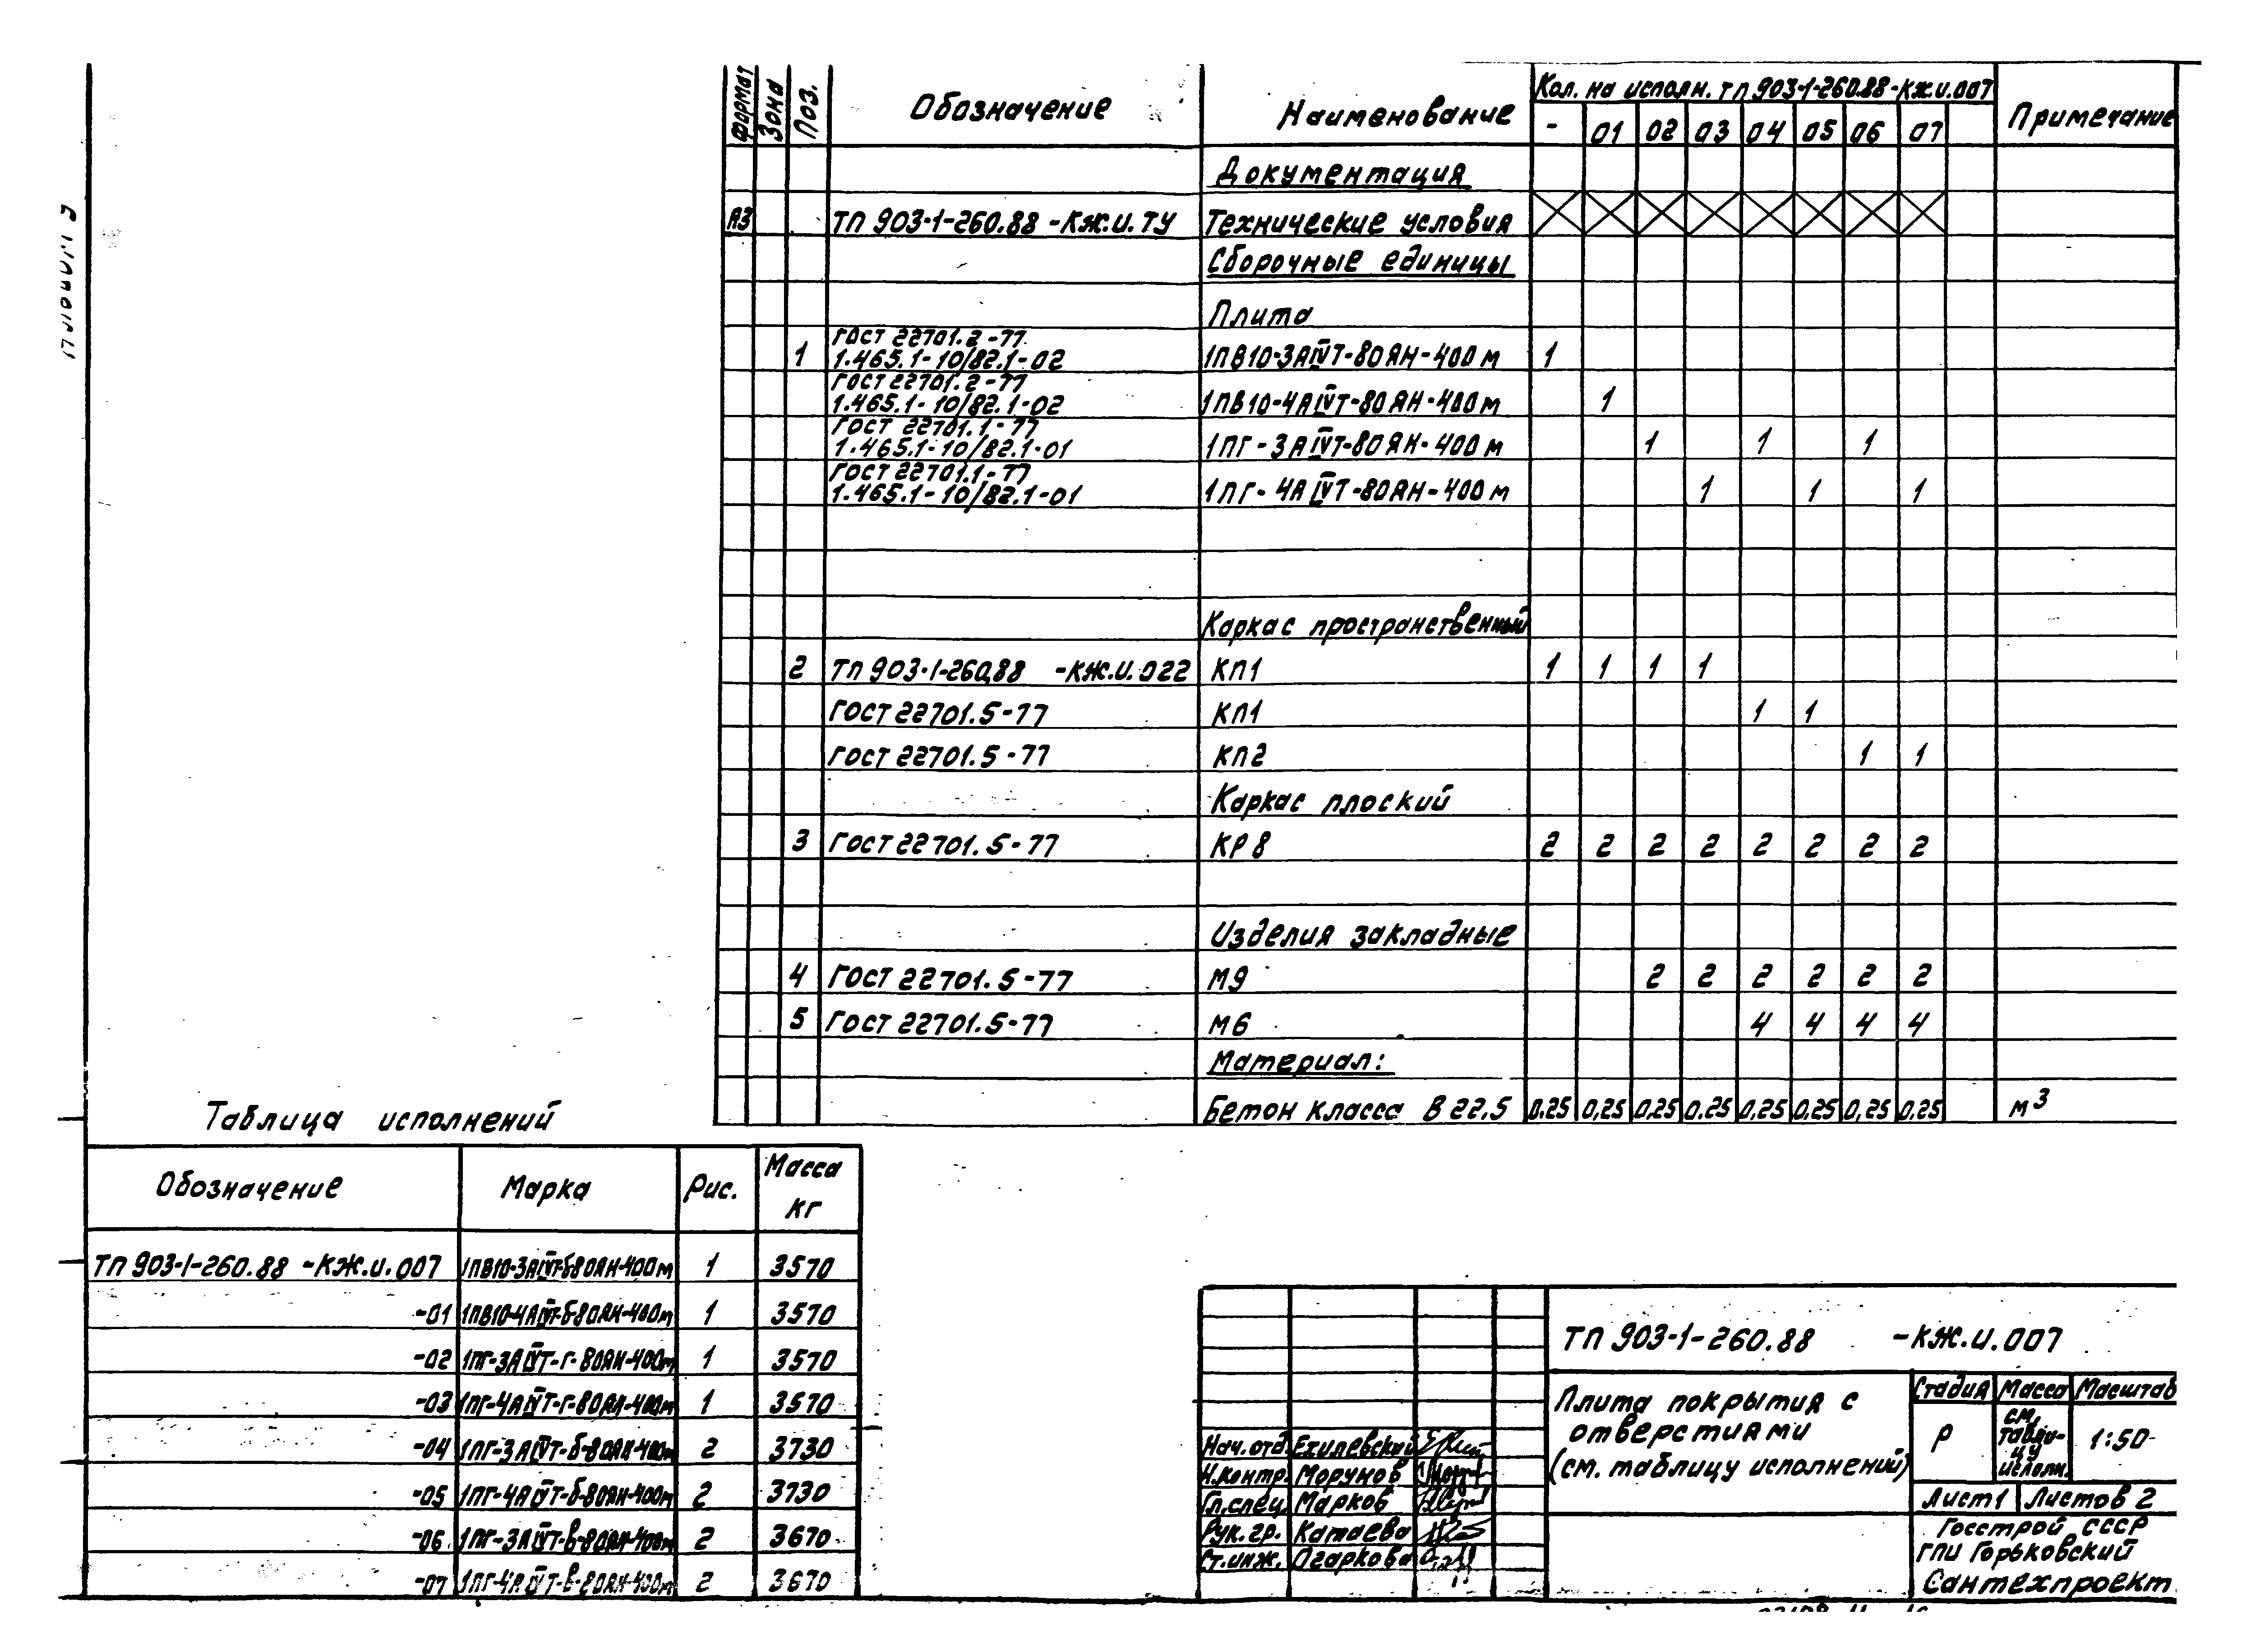 формат Зона Поз. Обозначение Наименование Кол. на исполн. ТП 903-1-260.88-КЖ.И.007 Примечание
- 01 02 03 04 05 06 07
Документация
А3 ТП 903-1-260.88 -КЖ.И.ТУ Технические условия
Сборочные единицы
Плита
ГОСТ 22701.2-77
1 1.465.1-10/82.1-02 1ПВ10-3АIVТ-80АН-400м 1
ГОСТ 22701.2-77
1.465.1-10/82.1-02 1ПВ10-4АIVТ-80АН-400м 1
ГОСТ 22701.1-77
1.465.1-10/82.1-01 1ПГ-3АIVТ-80АН-400м 1 1 1
ГОСТ 22701.1-77
1.465.1-10/82.1-01 1ПГ-4АIVТ-80АН-400м 1 1 1
Каркас пространственный
2 ТП 903-1-260.88 -КЖ.И.022 КП1 1 1 1 1
ГОСТ 22701.5-77 КП1 1 1
ГОСТ 22701.5-77 КП2 1 1
Каркас плоский
3 ГОСТ 22701.5-77 КР8 2 2 2 2 2 2 2 2
Изделия закладные
4 ГОСТ 22701.5-77 М9 2 2 2 2 2 2
5 ГОСТ 22701.5-77 М6 4 4 4 4
Материал:
Бетон класса В 22,5 0,25 0,25 0,25 0,25 0,25 0,25 0,25 0,25 м3
Таблица исполнений
Обозначение Марка Рис. Масса кг
ТП 903-1-260.88 -КЖ.И.007 1ПВ10-3АIVТ-б-80АН-400м 1 3570
-01 1ПВ10-4АIVТ-б-80АН-400м 1 3570
-02 1ПГ-3АIVТ-г-80АН-400м 1 3570
-03 1ПГ-4АIVТ-г-80АН-400м 1 3570
-04 1ПГ-3АIVТ-б-80АН-400м 2 3730
-05 1ПГ-4АIVТ-б-80АН-400м 2 3730
-06 1ПГ-3АIVТ-в-80АН-400м 2 3670
-07 1ПГ-4АIVТ-в-80АН-400м 2 3670
ТП 903-1-260.88 -КЖ.И.007
Плита покрытия с
отверстиями
(см. таблицу исполнений)
Стадия Масса Масштаб
Р см. таблицу исполн. 1:50
Лист 1 Листов 2
Госстрой СССР
ГПИ Горьковский
Сантехпроект
Нач.отд. Ехилевский
Н.контр. Морунов
Гл.спец. Марков
Рук.гр. Катаева
Ст.инж. Огаркова